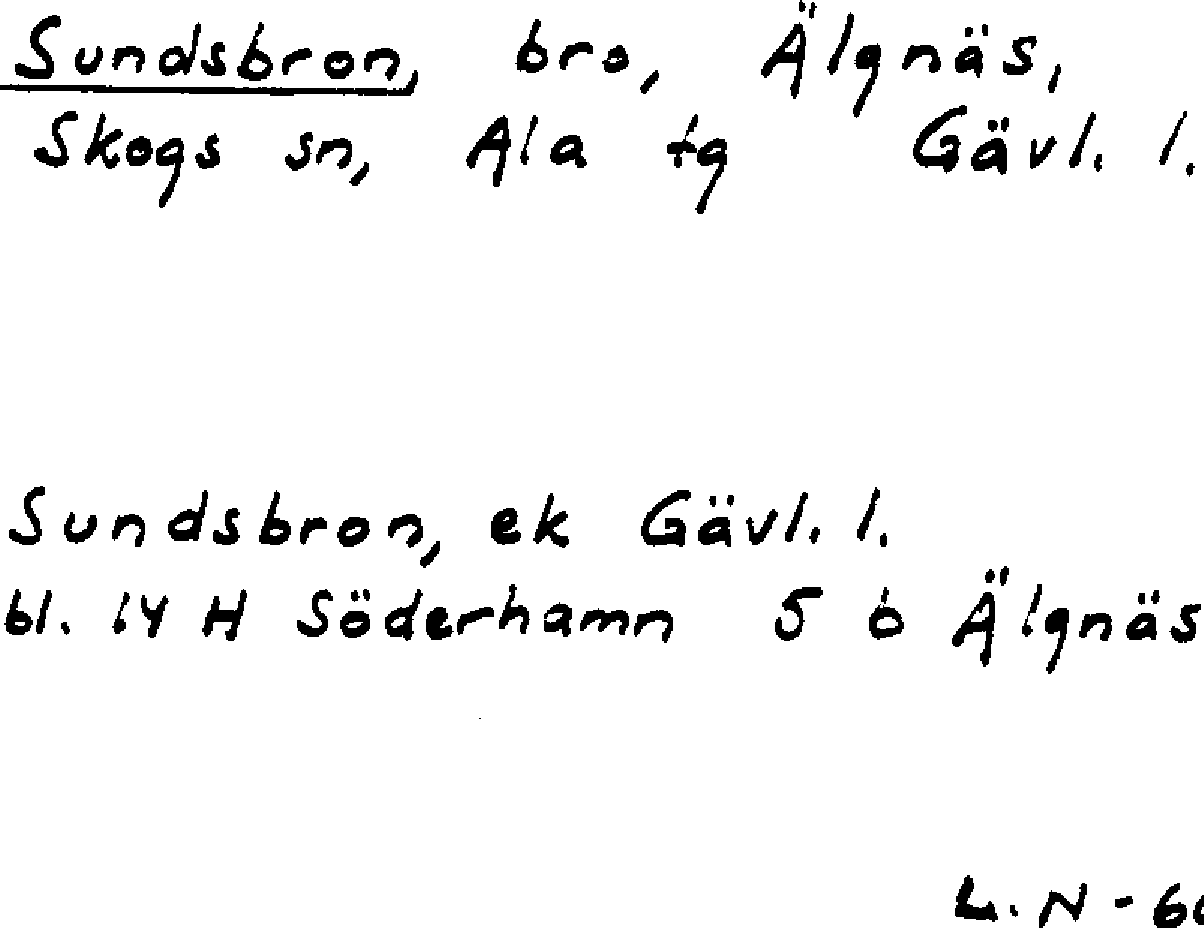 Sundsbron, bro, Älgnäs,
Skogs sn, Ala tg Gävl. l.
Sundsbron, ek Gävl. l.
bl. 14 H Söderhamn 5 b Älgnäs
L. N - 66